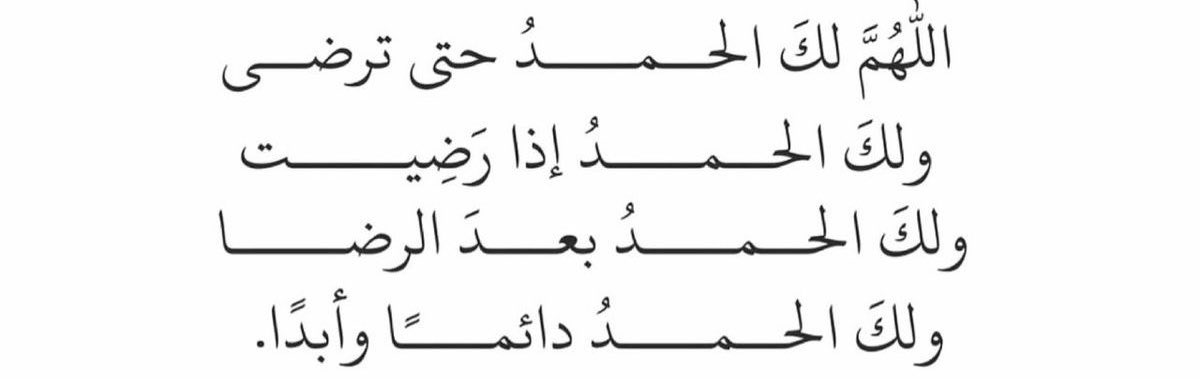 اللَّهُمَّ لكَ الحمدُ حتى ترضى
ولكَ الحمدُ إذا رَضِيت
ولكَ الحمدُ بعدَ الرضا
ولكَ الحمدُ دائمًا وأبدًا.